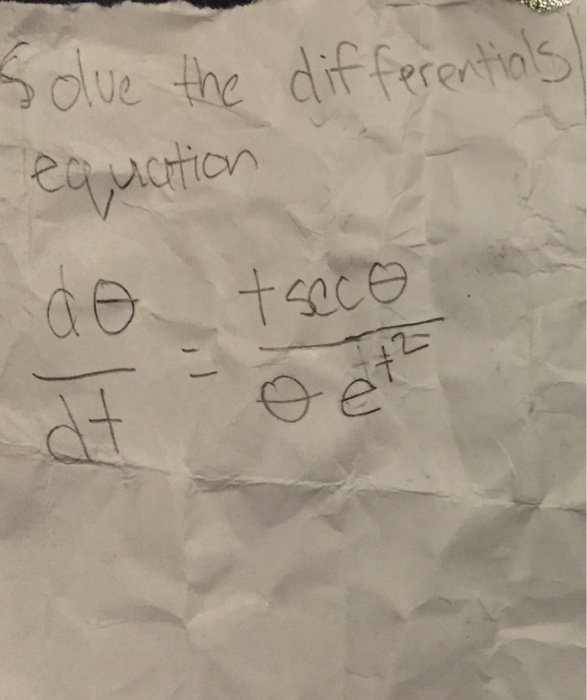 Solve the differentials
equation
dθ/dt = t secθ / θ e^t²